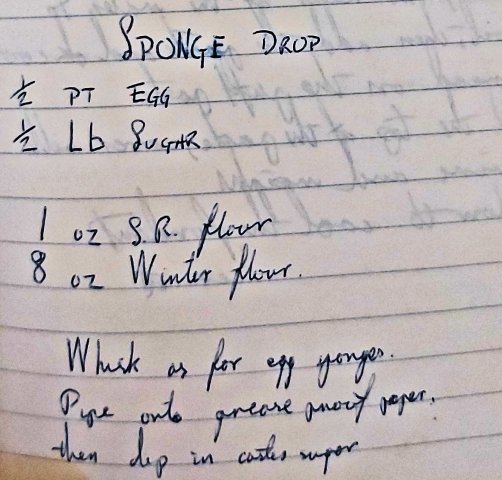 SPONGE DROP
½ PT EGG
½ Lb SUGAR
1 oz S.R. flour
8 oz Winter flour.
Whisk as for egg sponges.
Pipe onto grease proof paper.
then dip in castor sugar